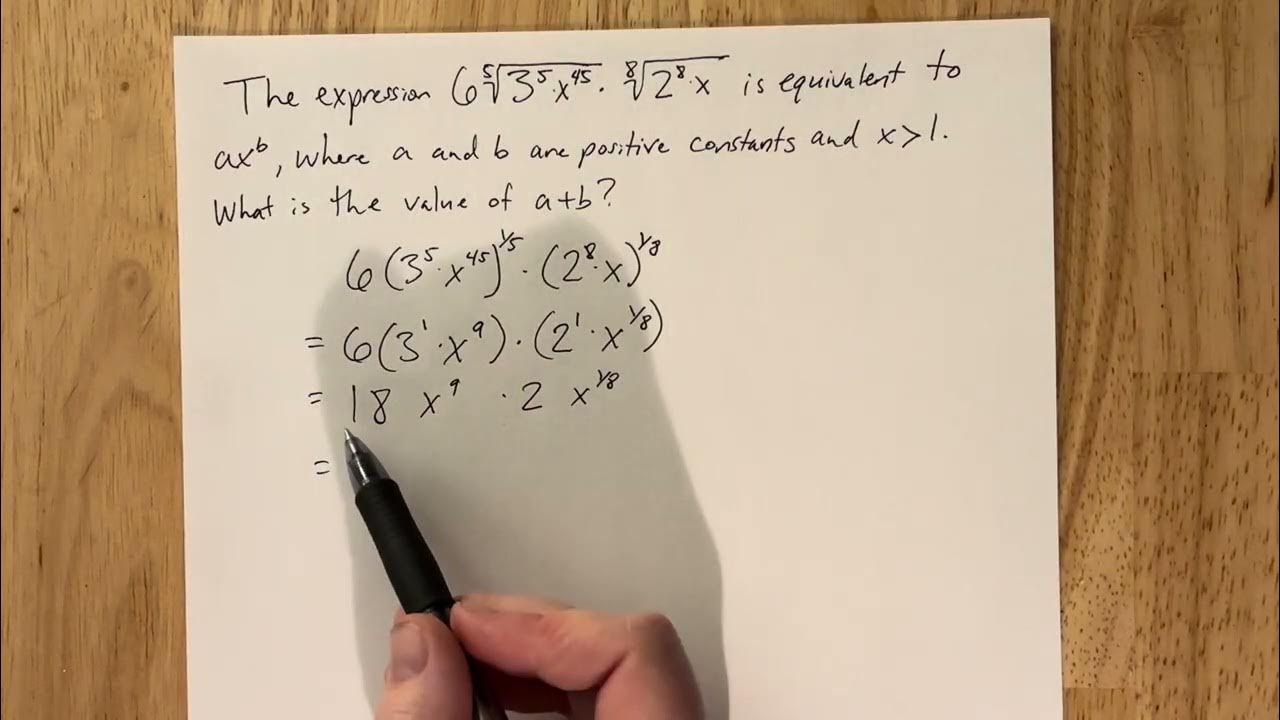 The expression 6⁵√(3⁵·x⁴⁵) · ⁸√(2⁸·x) is equivalent to
ax^b, where a and b are positive constants and x>1.
What is the value of a+b?
6(3⁵·x⁴⁵)^1/5 · (2⁸·x)^1/8
= 6(3¹·x⁹)·(2¹·x^1/8)
= 18 x⁹ · 2 x^1/8
=